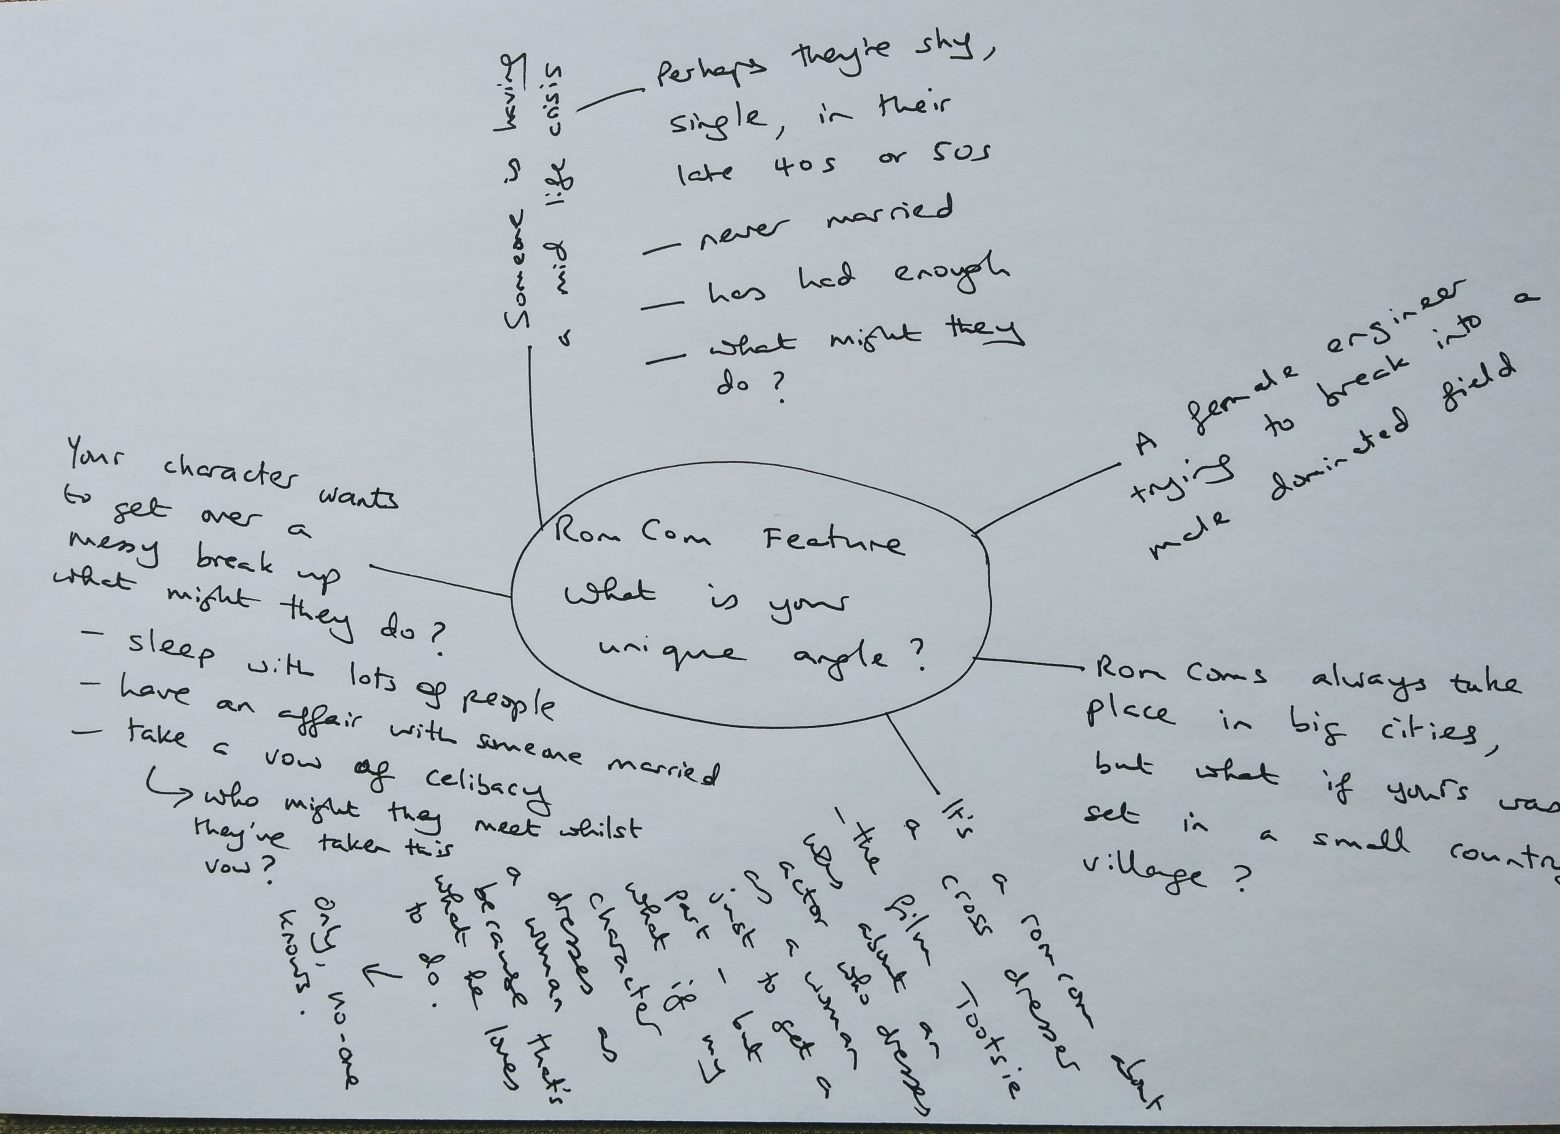 Rom Com Feature
What is your
unique angle?
Someone is having
a mid life crisis
Perhaps they're shy,
single, in their
late 40s or 50s
— never married
— has had enough
— what might they
do?
A female engineer
trying to break into a
male dominated field
Rom Coms always take
place in big cities,
but what if yours was
set in a small country
village?
It's a rom com about
a cross dresser
- the film Tootsie
was about an
actor who dresses
as a woman
just to get a
part - but
what if my
character
dresses as
a woman
because that's
what he loves
to do.
Only, no-one
knows.
Your character wants
to get over a
messy break up
what might they do?
- sleep with lots of people
- have an affair with someone married
- take a vow of celibacy
who might they meet whilst
they've taken this
vow?